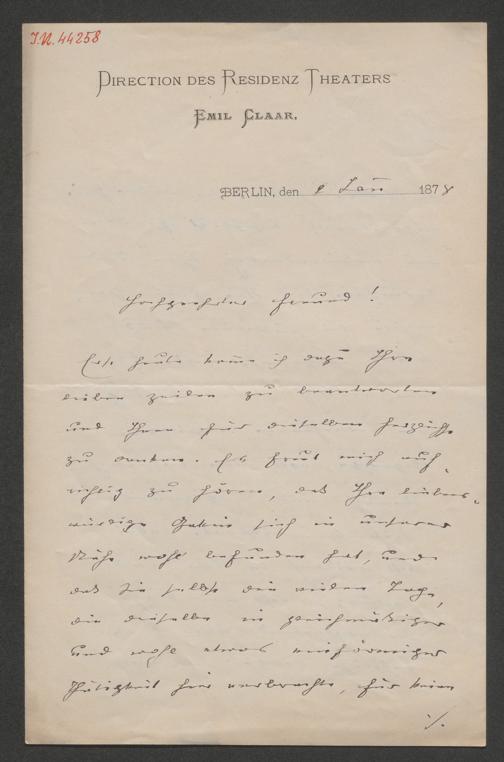 I.N. 44258
DIRECTION DES RESIDENZ THEATERS
EMIL CLAAR.
BERLIN, den 8 Jan 1878
Hochgeehrter Freund!
Erst heute komme ich dazu Ihre
lieben Zeilen zu beantworten
und Ihnen für dieselben herzlichst
zu danken. Es freut mich auf-
richtig zu hören, daß Ihre liebens-
würdige Gattin sich in unserer
Nähe wohl befunden hat, und
daß Sie selbst die vielen Tage,
die dieselbe in gleichmäßiger
und wohl etwas einförmiger
Thätigkeit hier verbrachte, für keine
./.